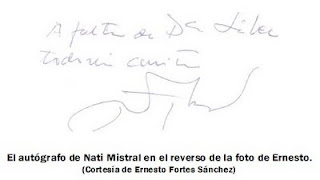 A falta de
todo mi cariño
El autógrafo de Nati Mistral en el reverso de la foto de Ernesto.
(Cortesía de Ernesto Fortes Sánchez)